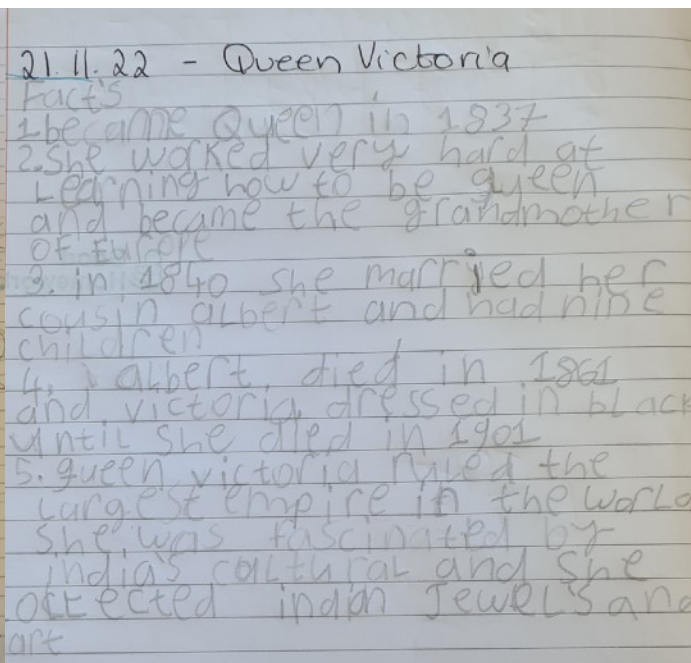 21.11.22 - Queen Victoria
Fact's
1 became Queen in 1837
2. She worked very hard at
Learning how to be queen
and became the grandmother
OF Europe
3. in 1840 she married her
cousin albert and had nine
children
4. albert died in 1861
and victoria dressed in black
until she died in 1901
5. queen victoria ruled the
Largest empire in the world
She was fascinated by
india's cultural and She
ollected indian Jewel's and
art